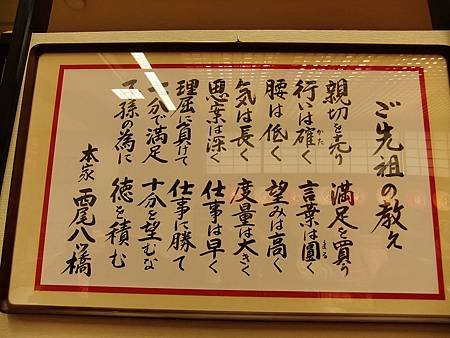 ご先祖の教え
親切を売り 満足を買う
行いは確(かた)く 言葉は圓(まる)く
腰は低く 望みは高く
気は長く 度量は大きく
思案は深く 仕事は早く
理屈に負けて 仕事に勝て
八分で満足 十分を望むな
子孫の為に 徳を積む
本家 西尾八ッ橋